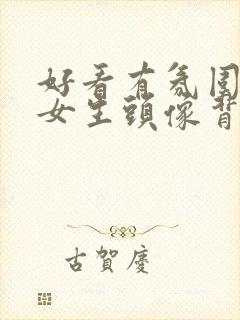 好看有氛围
女生頭像背
古賀慶